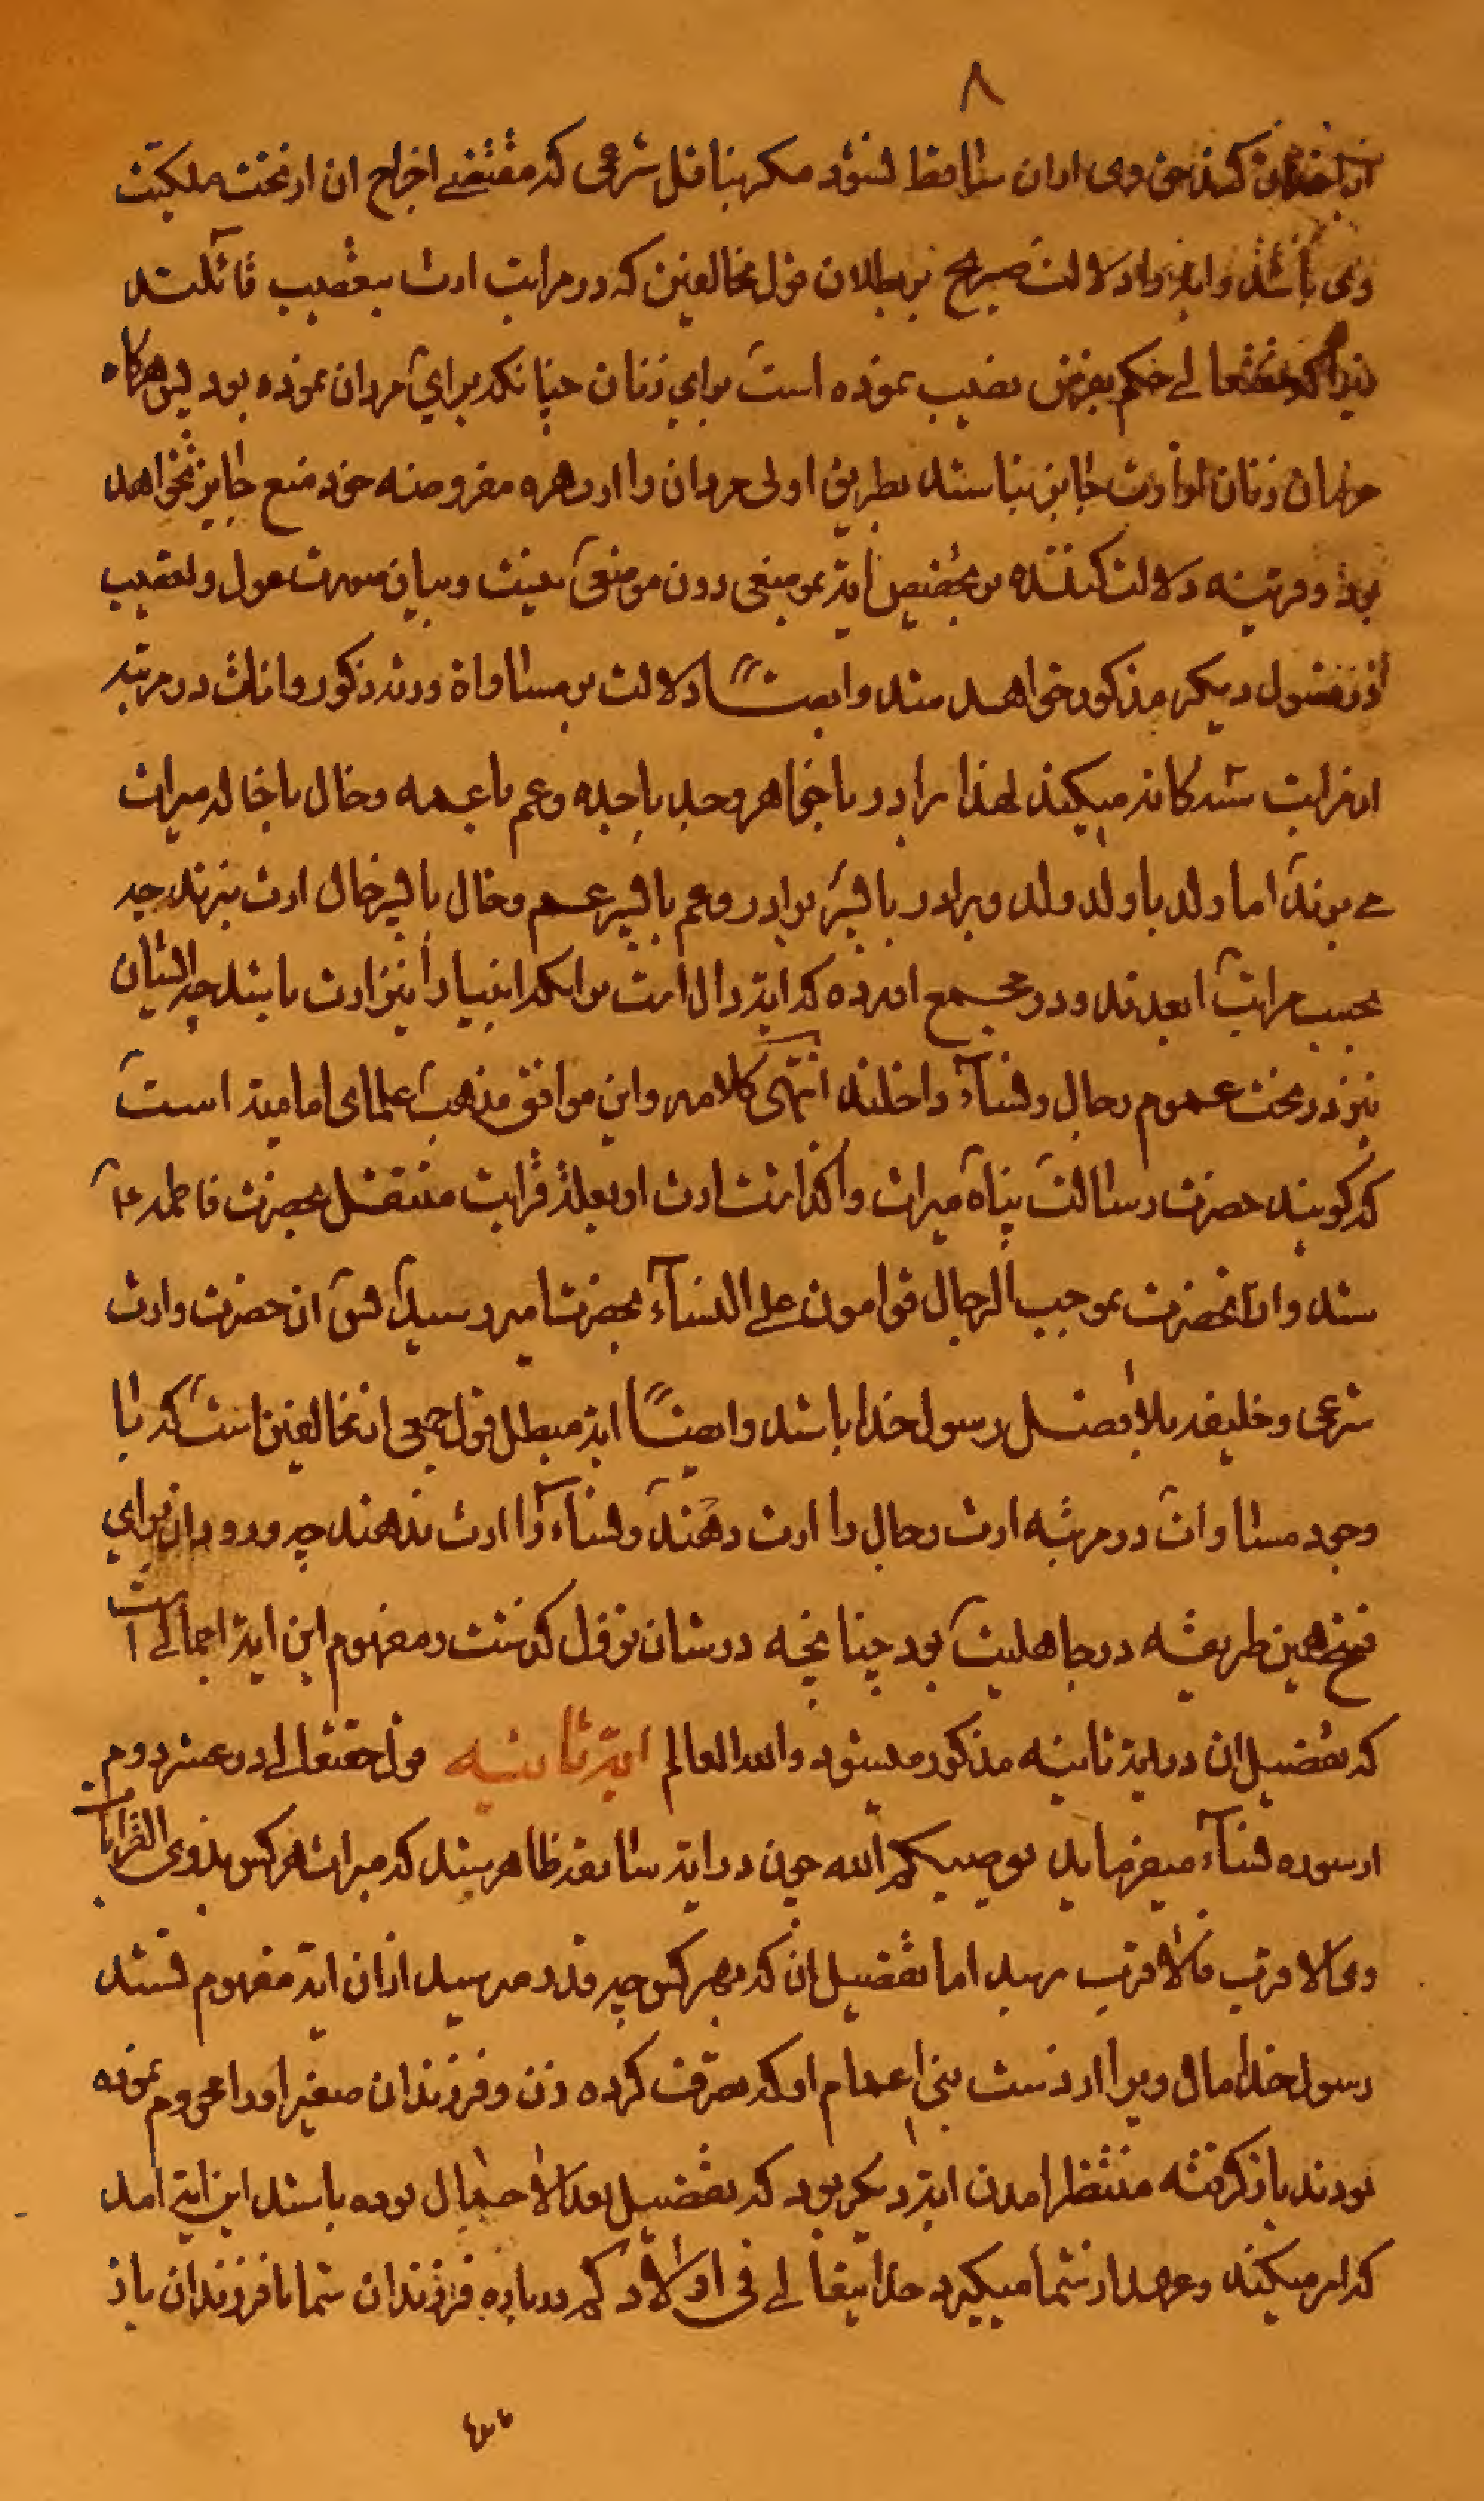 ۸
از اخذ آن کند حق وی از آن ساقط نشود مکر بناقل شرعی که مقتضی اخراج ان از تحت ملکیت
وی باشد و ایه را دلالت صریح بر بطلان قول مخالفین که در مراتب ارث بتعصیب قائلند
زیرا که حقتعالی حکم بفرض نصیب نموده است برای زنان چنانکه برای مردان نموده بود پس هرکاه
حرمان زنان از وارث جایز نباشد بطریق اولی مردان را از بهره مفروضه خود منع جایز نخواهد
بود و قرینه دلالت کننده بر تخصیص ایه بموضعی دون موضعی نیست و بیان صورت عول و تعصیب
در فصول دیکر مذکور خواهد شد و ایضا دلالت بر مساواة ورثه ذکور و اناث در مرتبه
از قرابت سه کانه میکند لهذا برادر با خواهر و جد با جده و عم با عمه و خال با خاله میراث
می برند اما ولد با ولد ولد و برادر با پسر برادر و عم با پسر عم و خال با پسر خال ارث نبرند چه
بحسب مراتب ابعدند و در مجمع اورده که ایه دال است بر انکه انبیا را نیز ارث باشد چه ایشان
نیز در تحت عموم رجال و نساء داخلند انتهی کلامه و این موافق مذهب علمای امامیه است
که کویند حضرت رسالت پناه میراث واکذاشت ارث او بعلة قرابت منتقل بحضرت فاطمه ع
شد و از آنحضرت بموجب الرجال قوامون علی النساء بحضرت امیر رسید پس ان حضرت وارث
شرعی و خلیفه بلافصل رسول خدا باشد و ایضا ایه مبطل قول جمعی از مخالفین است که با
وجود مساوات در مرتبه ارث رجال را ارث دهند و نساء را ارث ندهند چه ورود ان برای
فسخ همین طریقه در جاهلیت بود چنانچه در شان نزول کذشت و مفهوم این ایه اجمالی است
که تفصیل ان در ایه ثانیه مذکور میشود والله العالم ایه ثانیه قول حقتعالی در عشر دوم
از سوره نساء میفرماید یوصیکم الله چون در ایه سابقه ظاهر شد که میراث هر کس بذوی القرابات
وی الاقرب فالاقرب رسد اما تفصیل ان که بهر کس چه قدر میرسد ازان ایه مفهوم نشد
رسول خدا مال ویرا از دست بنی اعمام او که تصرف کرده زن و فرزندان صغیر او را محروم نموده
بودند باز کرفته منتظر امدن ایه دیکر بود که تفصیل بعد الاجمال بوده باشد این ایه امد
که امر میکند و عهد از شما میکیرد خدایتعالی فی اولادکم درباره فرزندان شما با فرزندان باز